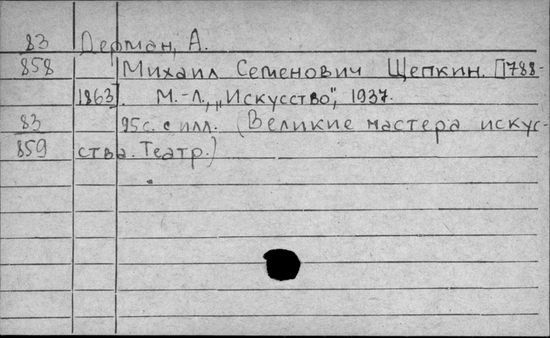 83 Дерман, А.
858 Михаил Семенович Щепкин. [1788-
1863]. М.-Л., „Искусство", 1937.
83 95 с. с илл. (Великие мастера искус-
859 ства. Театр.)